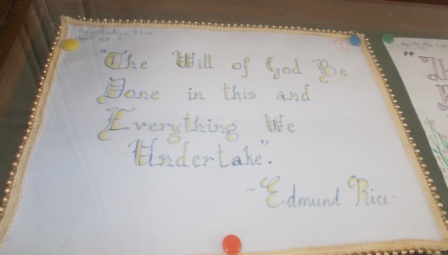 "The Will of God Be
Done in this and
Everything We
Undertake".
- Edmund Rice